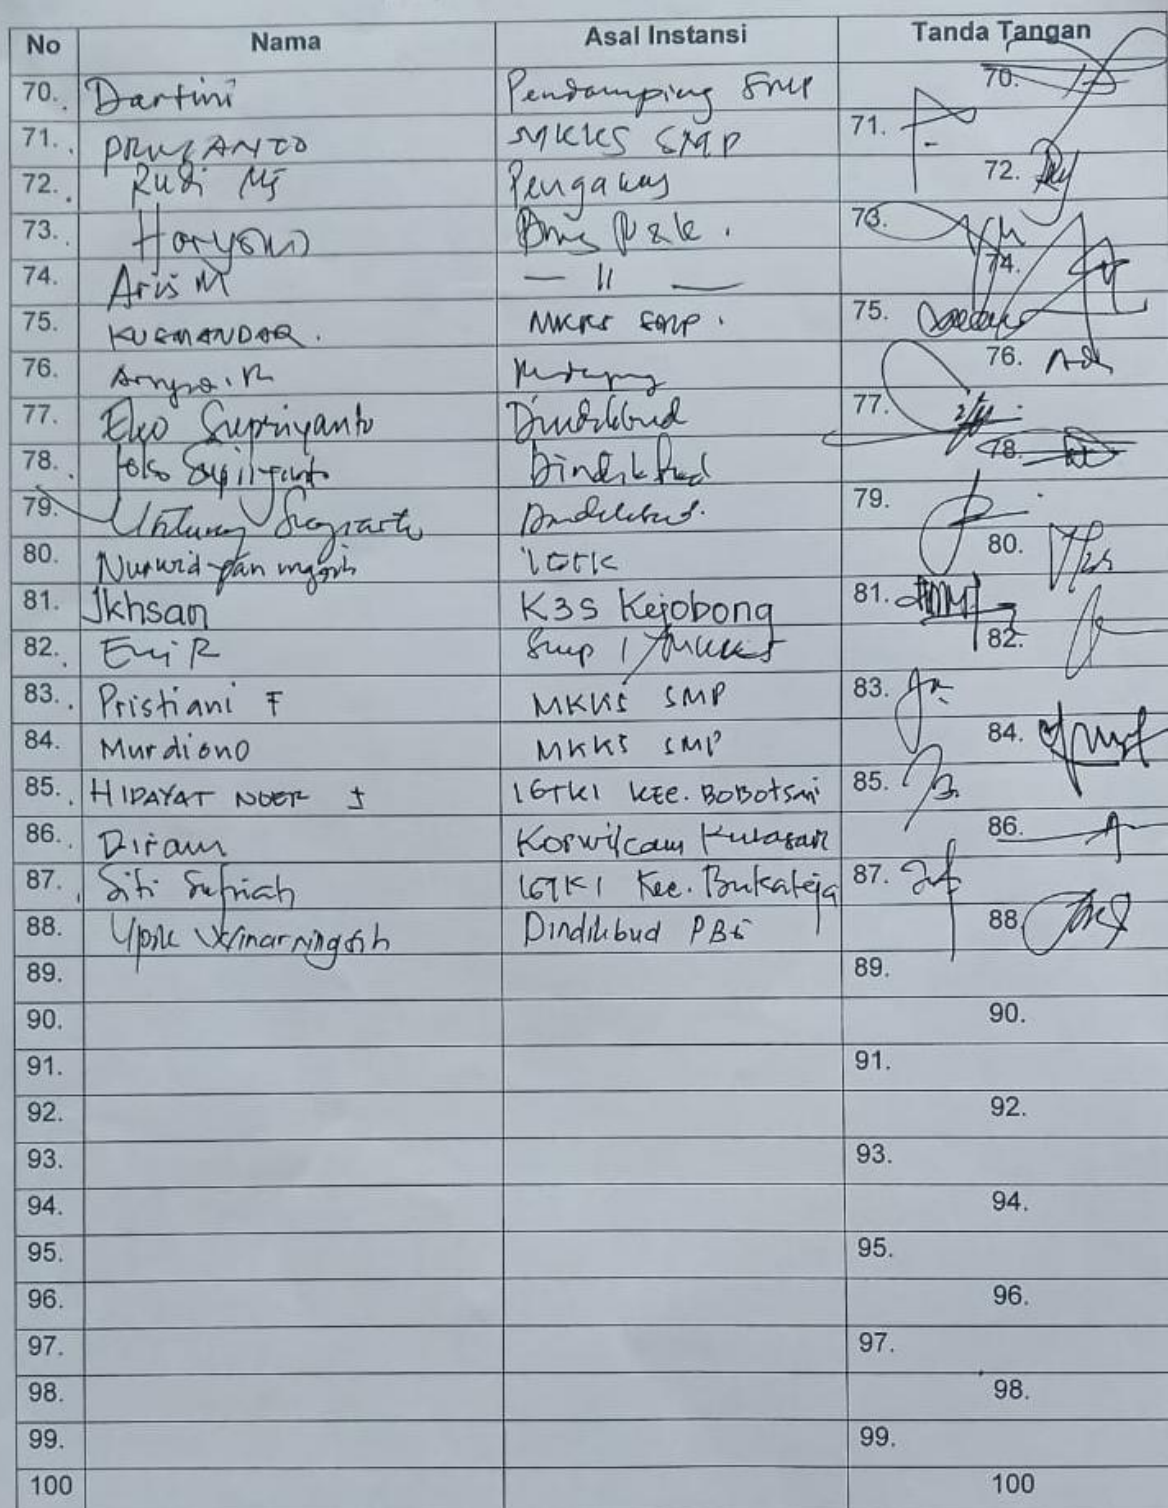 No Nama Asal Instansi Tanda Tangan
70. Dartini Pendamping SMP 70.
71. PRIYANTO MKKS SMP 71.
72. Rudi Pengawas 72.
73. Haryono 73.
74. Aris M — 11 — 74.
75. KUSMANDAR. MKKS SMP. 75.
76. 76.
77. Eko Supriyanto Dindikbud 77.
78. Joko Supriyanto Dindikbud 78.
79. Untung Sugiarto Dindikbud. 79.
80. Nurwid pan IGTK 80.
81. Ikhsan K3S Kejobong 81.
82. Eni R Smp 1 / MKKS 82.
83. Pristiani F MKKS SMP 83.
84. Murdiono MKKS SMP 84.
85. HIDAYAT NOER S IGTKI KEC. BOBOTSARI 85.
86. Diram Korwilcam Kutasari 86.
87. Siti Sufriah IGTKI Kec. Bukateja 87.
88. Upik Winarningsih Dindikbud PBG 88.
89. 89.
90. 90.
91. 91.
92. 92.
93. 93.
94. 94.
95. 95.
96. 96.
97. 97.
98. 98.
99. 99.
100 100